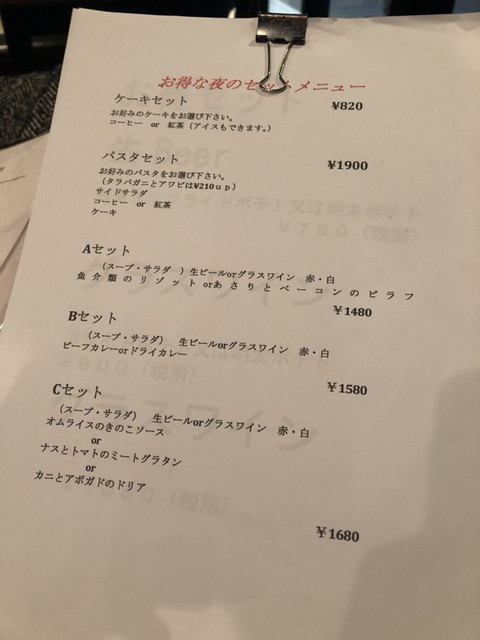 お得な夜のセットメニュー
ケーキセット ¥820
お好みのケーキをお選び下さい。
コーヒー or 紅茶（アイスもできます。）
パスタセット ¥1900
お好みのパスタをお選び下さい。
（タラバガニとアワビは¥210up）
サイドサラダ
コーヒー or 紅茶
ケーキ
Aセット
（スープ・サラダ ）生ビールorグラスワイン 赤・白
魚介類のリゾットorあさりとベーコンのピラフ
¥1480
Bセット
（スープ・サラダ） 生ビールorグラスワイン 赤・白
ビーフカレーorドライカレー
¥1580
Cセット
（スープ・サラダ） 生ビールorグラスワイン 赤・白
オムライスのきのこソース
or
ナスとトマトのミートグラタン
or
カニとアボガドのドリア
¥1680